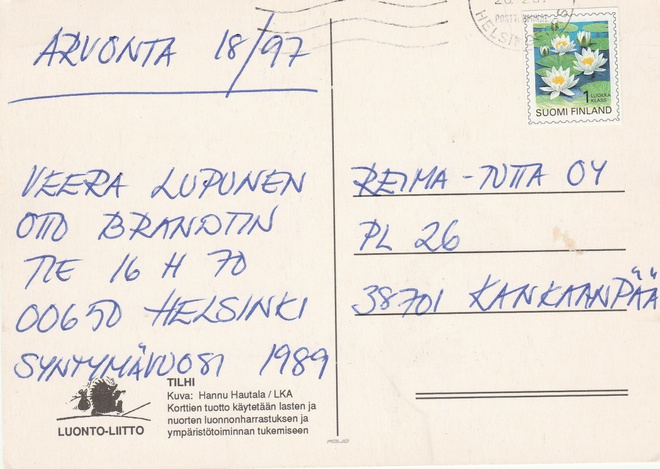 ARVONTA 18/97
VEERA LUPUNEN
OTTO BRANDTIN
TIE 16 H 70
00650 HELSINKI
SYNTYMÄVUOSI 1989
TILHI
Kuva: Hannu Hautala / LKA
Korttien tuotto käytetään lasten ja
nuorten luonnonharrastuksen ja
ympäristötoiminnan tukemiseen
LUONTO-LIITTO
POLJO
HELSINKI
1 LUOKKA
KLASS
SUOMI FINLAND
REIMA-TUTTA OY
PL 26
38701 KANKAANPÄÄ